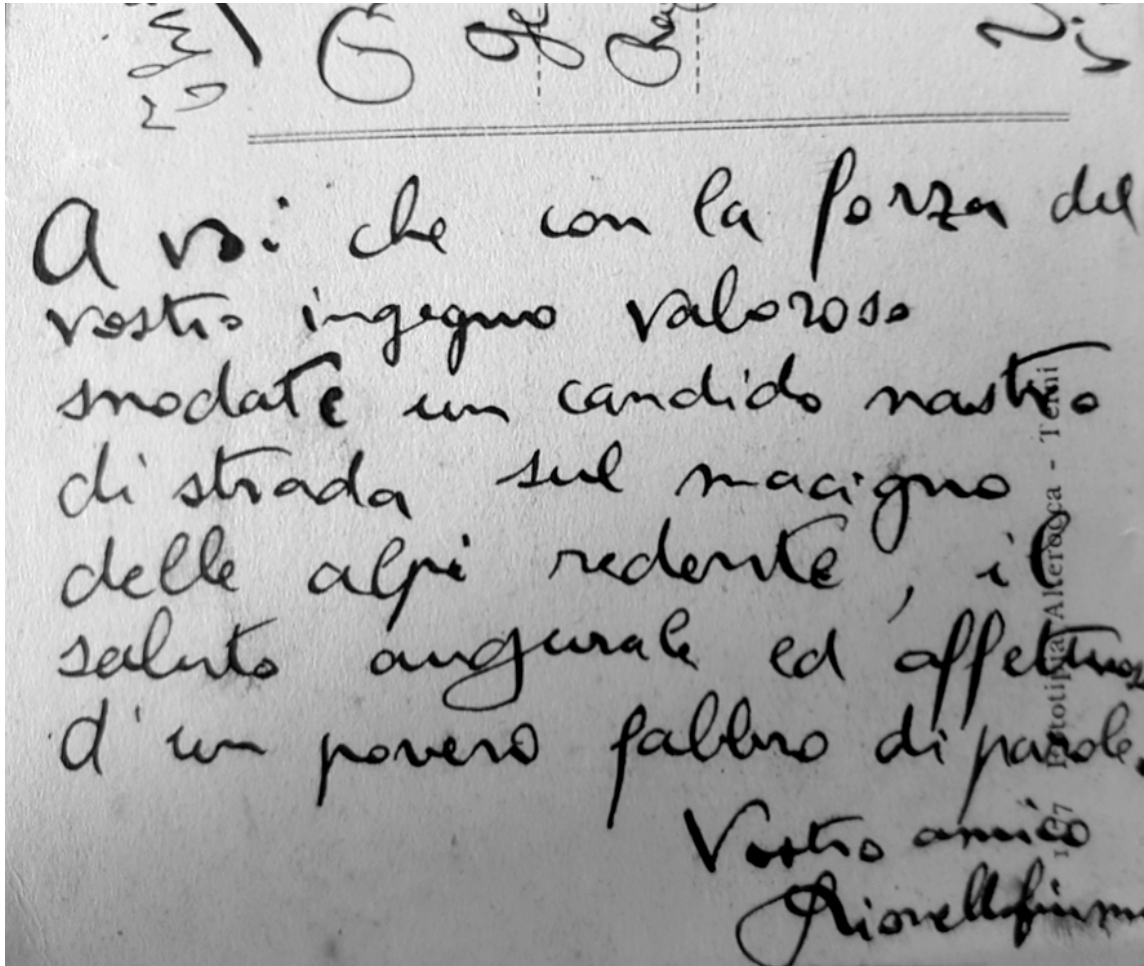 A voi che con la forza del
vostro ingegno valoroso
snodate un candido nastro
di strada sul macigno
delle alpi redente, il
saluto augurale ed affettuoso
d'un povero fabbro di parole.
Vostro amico
Lionello Fiumi
Fototipia Alterocca - Terni